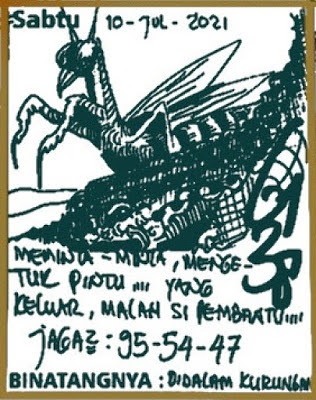 Sabtu 10-JUL-2021
MEMINTA-MINTA, MENGE-
TUK PINTU .... YANG
KELUAR, MALAH SI PEMBANTU....
JAGA2: 95-54-47
BINATANGNYA : DIDALAM KURUNGAN